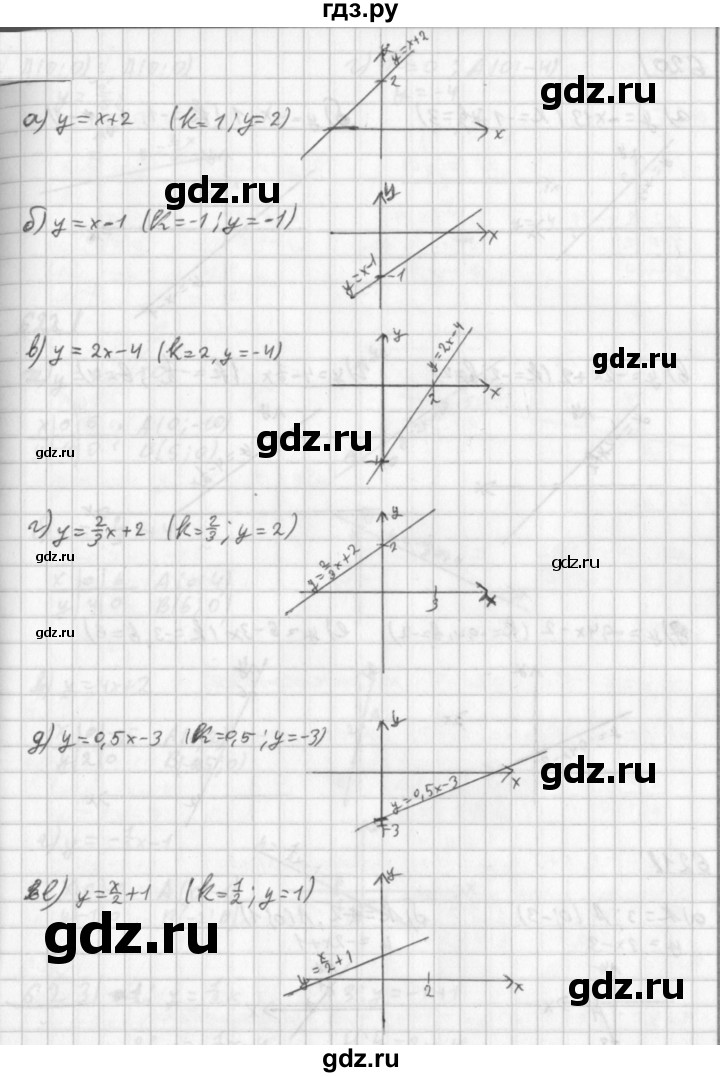 гдз.ру
y=x+2
2
а) y=x+2 (k=1; y=2)
x
gdz.ru
gdz.ru
y
б) y=x-1 (k=-1; y=-1)
x
y=x-1
-1
y
y=2x-4
в) y=2x-4 (k=2, y=-4)
gdz.ru
2
x
gdz.ru
gdz.ru
-4
y
г) y=2/3x+2 (k=2/3; y=2)
2
gdz.ru
y=2/3x+2
gdz.ru
3
x
gdz.ru
y
д) y=0,5x-3 (k=0,5; y=-3)
x
gdz.ru
y=0,5x-3
-3
y
е) y=x/2+1 (k=1/2; y=1)
gdz.ru
y=x/2+1
gdz.ru
2
x
gdz.ru